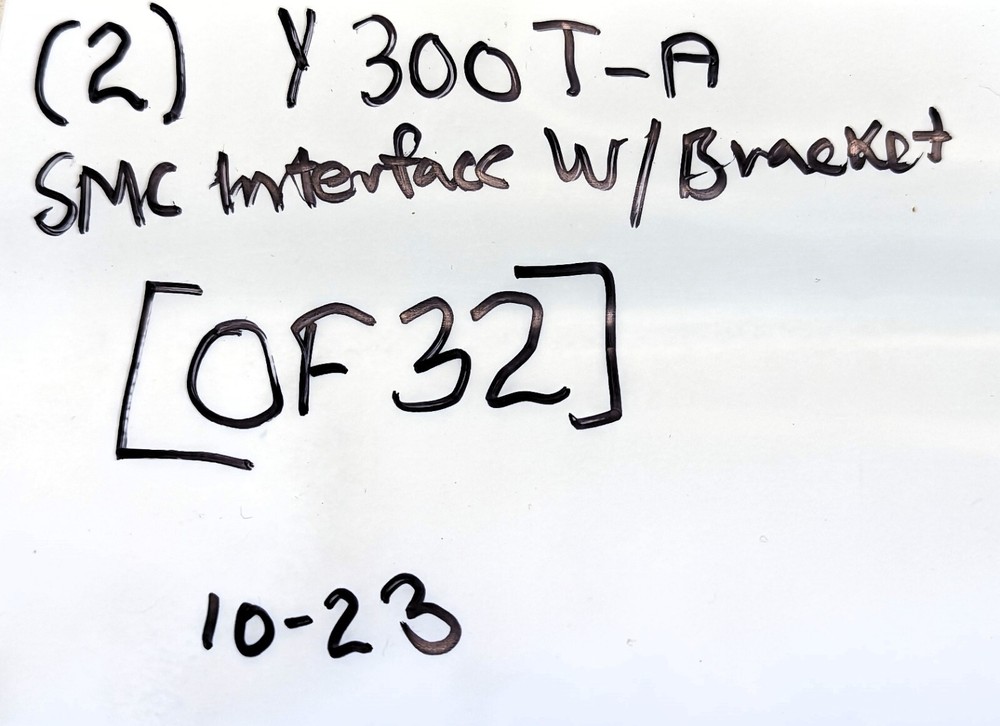 (2) Y300T-A
SMC Interface W/Bracket
[OF 32]
10-23